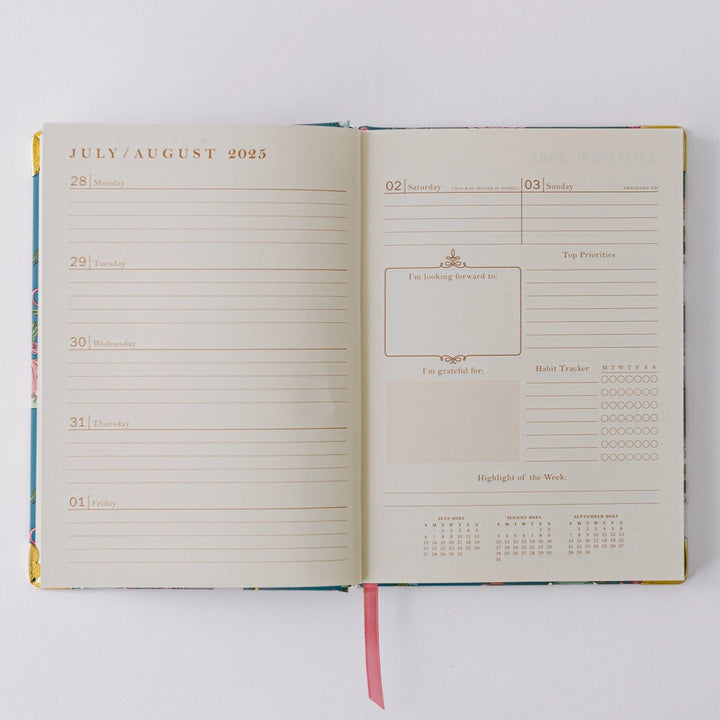 JULY/AUGUST 2025
28 Monday
29 Tuesday
30 Wednesday
31 Thursday
01 Friday
02 Saturday
03 Sunday
FRIENDSHIP DAY
I'm looking forward to:
Top Priorities
I'm grateful for:
Habit Tracker
M T W T F S S
Highlight of the Week:
JULY 2025
S M T W T F S
1 2 3 4 5
6 7 8 9 10 11 12
13 14 15 16 17 18 19
20 21 22 23 24 25 26
27 28 29 30 31
AUGUST 2025
S M T W T F S
1 2
3 4 5 6 7 8 9
10 11 12 13 14 15 16
17 18 19 20 21 22 23
24 25 26 27 28 29 30
31
SEPTEMBER 2025
S M T W T F S
1 2 3 4 5 6
7 8 9 10 11 12 13
14 15 16 17 18 19 20
21 22 23 24 25 26 27
28 29 30